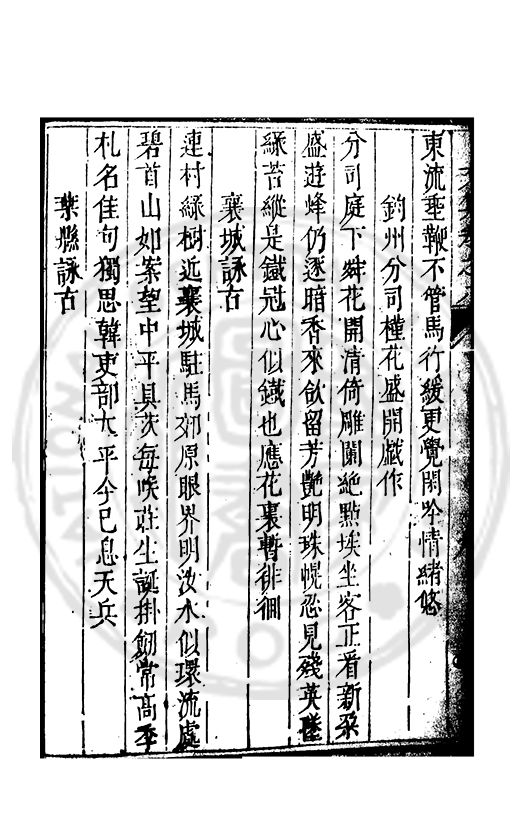 東流垂鞭不管馬行緩更覺閑吟情緒悠
鈞州分司槿花盛開戲作
分司庭下舜花開清倚雕闌絶點埃坐客正看新朶
盛遊蜂仍逐暗香來欲留芳艷明珠幌忍見殘英墜
綠苔縱是鐵冠心似鐵也應花裏暫徘徊
襄城詠古
連村綠樹近襄城駐馬郊原眼界明汝水似環流處
碧首山如案望中平具茨每唉莊生誕掛劒常高季
札名佳句獨思韓吏部太平今已息天兵
葉縣詠古